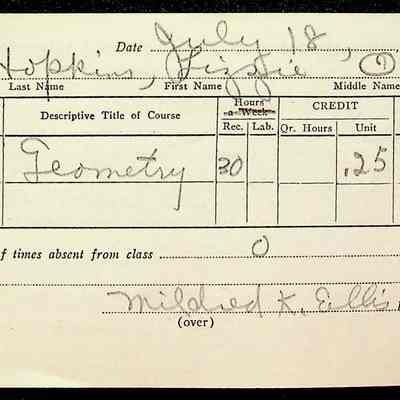 Date July 18,
Hopkins, Lizzie
Last Name First Name Middle Name
Descriptive Title of Course Hours a Week CREDIT
Rec. Lab. Qr. Hours Unit
Geometry 30 .25
f times absent from class 0
Mildred K. Ellis
(over)